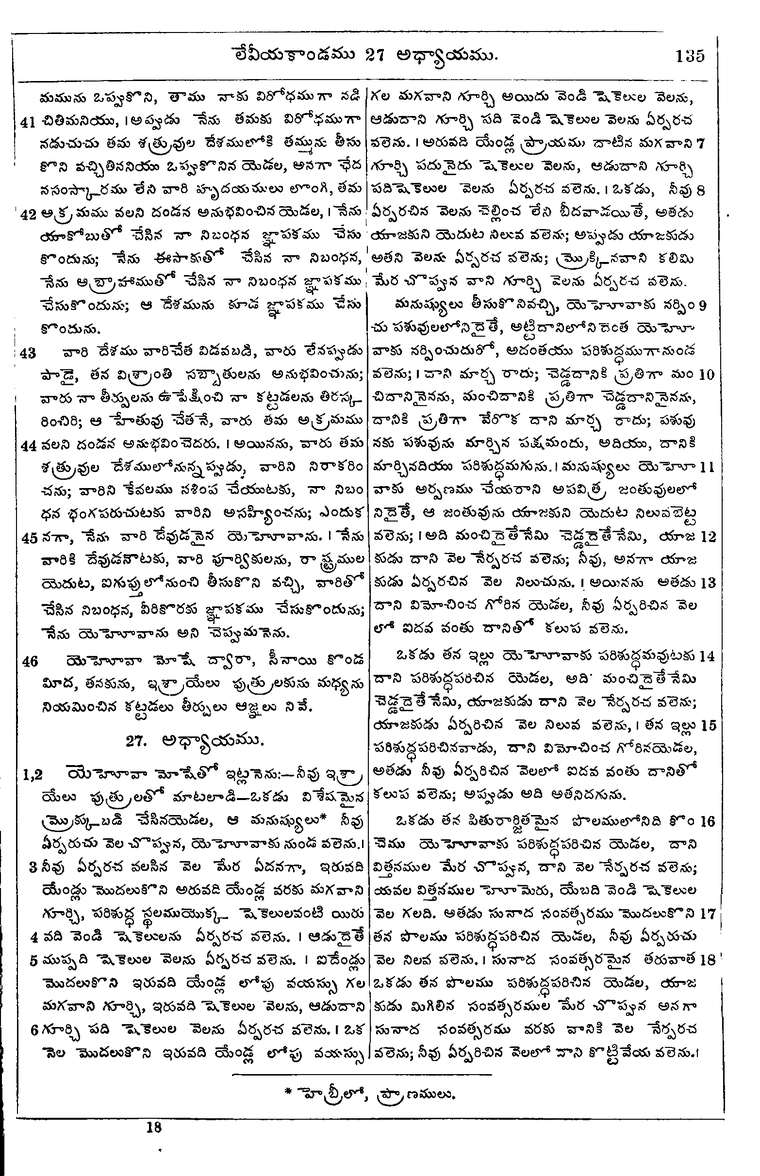 లేవీయకాండము 27 అధ్యాయము.
135
మమును ఒప్పుకొని, తాము నాకు విరోధముగా నడి
41 చితిమనియు, । అప్పుడు నేను తమకు విరోధముగా
నడుచుచు తమ శత్రువుల దేశములోకి తమ్మును తీసు
కొని వచ్చితిననియు ఒప్పుకొనిన యెడల, అనగా ఛేద
నసంస్కారము లేని వారి హృదయములు లొంగి, తమ
42 అక్రమము వలని దండన అనుభవించినయెడల, । నేను
యాకోబుతో చేసిన నా నిబంధన జ్ఞాపకము చేసు
కొందును; నేను ఈసాకుతో చేసిన నా నిబంధన,
నేను అబ్రాహాముతో చేసిన నా నిబంధన జ్ఞాపకము
చేసుకొందును; ఆ దేశమును కూడ జ్ఞాపకము చేసు
కొందును.
43 వారి దేశము వారిచేత విడవబడి, వారు లేనప్పుడు
పాడై, తన విశ్రాంతి సబ్బాతులను అనుభవించును;
వారు నా తీర్పులను ఉపేక్షించి నా కట్టడలను తిరస్క
రించిరి; ఆ హేతువు చేతనే, వారు తమ అక్రమము
44 వలని దండన అనుభవించెదరు. । అయినను, వారు తమ
శత్రువుల దేశములోనున్నప్పుడు, వారిని నిరాకరిం
చను; వారిని కేవలము నశింప చేయుటకు, నా నిబం
ధన భంగపరుచుటకు వారిని అసహ్యించను; ఎందుక
45 నగా, నేను వారి దేవుడనైన యెహోవాను. । నేను
వారికి దేవుడనౌటకు, వారి పూర్వికులను, రాష్ట్రముల
యెదుట, ఐగుప్తులోనుంచి తీసుకొని వచ్చి, వారితో
చేసిన నిబంధన, వీరికొరకు జ్ఞాపకము చేసుకొందును;
నేను యెహోవాను అని చెప్పుమనెను.
46 యెహోవా మోషే ద్వారా, సీనాయి కొండ
మీద, తనకును, ఇశ్రాయేలు పుత్రులకును మధ్యను
నియమించిన కట్టడలు తీర్పులు ఆజ్ఞలు నివే.
27. అధ్యాయము.
1,2 యెహోవా మోషేతో ఇట్లనెను:—నీవు ఇశ్రా
యేలు పుత్రులతో మాటలాడి—ఒకడు విశేషమైన
మ్రొక్కుబడి చేసినయెడల, ఆ మనుష్యులు* నీవు
ఏర్పరుచు వెల చొప్పున, యెహోవాకు నుండ వలెను.।
3 నీవు ఏర్పరచ వలసిన వెల మేర ఏదనగా, ఇరువది
యేండ్లు మొదలుకొని అరువది యేండ్ల వరకు మగవాని
గూర్చి, పరిశుద్ధ స్థలముయొక్క షెకెలులవంటి యిరు
4 వది వెండి షెకెలులను ఏర్పరచ వలెను. । ఆడుదైతే
5 ముప్పది షెకెలుల వెలను ఏర్పరచ వలెను. । ఐదేండ్లు
మొదలుకొని ఇరువది యేండ్ల లోపు వయస్సు గల
మగవాని గూర్చి, ఇరువది షెకెలుల వెలను, ఆడుదాని
6 గూర్చి పది షెకెలుల వెలను ఏర్పరచ వలెను. । ఒక
నెల మొదలుకొని ఇరువది యేండ్ల లోపు వయస్సు
గల మగవాని గూర్చి అయిదు వెండి షెకెలుల వెలను,
ఆడుదాని గూర్చి పది వెండి షెకెలుల వెలను ఏర్పరచ
వలెను. । అరువది యేండ్ల ప్రాయము దాటిన మగవాని 7
గూర్చి పదునైదు షెకెలుల వెలను, ఆడుదాని గూర్చి
పదిషెకెలుల వెలను ఏర్పరచ వలెను. । ఒకడు, నీవు 8
ఏర్పరచిన వెలను చెల్లించ లేని బీదవాడయితే, అతడు
యాజకుని యెదుట నిలువ వలెను; అప్పుడు యాజకుడు
అతని వెలను ఏర్పరచ వలెను; మ్రొక్కినవాని కలిమి
మేర చొప్పున వాని గూర్చి వెలను ఏర్పరచ వలెను.
మనుష్యులు తీసుకొనివచ్చి, యెహోవాకు నర్పిం 9
చు పశువులలోనిదైతే, అట్టిదానిలోనిదంత యెహో
వాకు నర్పించుదురో, అదంతయు పరిశుద్ధముగానుండ
వలెను; । దాని మార్చ రాదు; చెడ్డదానికి ప్రతిగా మం 10
చిదానినైనను, మంచిదానికి ప్రతిగా చెడ్డదానినైనను,
దానికి ప్రతిగా వేరొక దాని మార్చ రాదు; పశువు
నకు పశువును మార్చిన పక్షమందు, అదియు, దానికి
మార్చినదియు పరిశుద్ధమగును. । మనుష్యులు యెహో 11
వాకు అర్పణము చేయరాని అపవిత్ర జంతువులలో
నిదైతే, ఆ జంతువును యాజకుని యెదుట నిలువబెట్ట
వలెను; । అది మంచిదైతేనేమి చెడ్డదైతేనేమి, యాజ 12
కుడు దాని వెల నేర్పరచ వలెను; నీవు, అనగా యాజ
కుడు ఏర్పరచిన వెల నిలుచును. । అయినను అతడు 13
దాని విమోచించ గోరిన యెడల, నీవు ఏర్పరిచిన వెల
లో ఐదవ వంతు దానితో కలుప వలెను.
ఒకడు తన ఇల్లు యెహోవాకు పరిశుద్ధమవుటకు 14
దాని పరిశుద్ధపరిచిన యెడల, అది మంచిదైతేనేమి
చెడ్డదైతేనేమి, యాజకుడు దాని వెల నేర్పరచ వలెను;
యాజకుడు ఏర్పరిచిన వెల నిలువ వలెను, । తన ఇల్లు 15
పరిశుద్ధపరిచినవాడు, దాని విమోచించ గోరినయెడల,
అతడు నీవు ఏర్పరిచిన వెలలో ఐదవ వంతు దానితో
కలుప వలెను; అప్పుడు అది అతనిదగును.
ఒకడు తన పితురార్జితమైన పొలములోనిది కొం 16
చెము యెహోవాకు పరిశుద్ధపరిచిన యెడల, దాని
విత్తనముల మేర చొప్పున, దాని వెల నేర్పరచ వలెను;
యవల విత్తనముల హోమెరు, యేబది వెండి షెకెలుల
వెల గలది. అతడు సునాద సంవత్సరము మొదలుకొని 17
తన పొలము పరిశుద్ధపరిచిన యెడల, నీవు ఏర్పరుచు
వెల నిలవ వలెను. । సునాద సంవత్సరమైన తరువాత 18
ఒకడు తన పొలము పరిశుద్ధపరిచిన యెడల, యాజ
కుడు మిగిలిన సంవత్సరముల మేర చొప్పున అనగా
సునాద సంవత్సరము వరకు వానికి వెల నేర్పరచ
వలెను; నీవు ఏర్పరిచిన వెలలో దాని కొట్టివేయ వలెను.।
* హెబ్రీలో, ప్రాణములు.
18